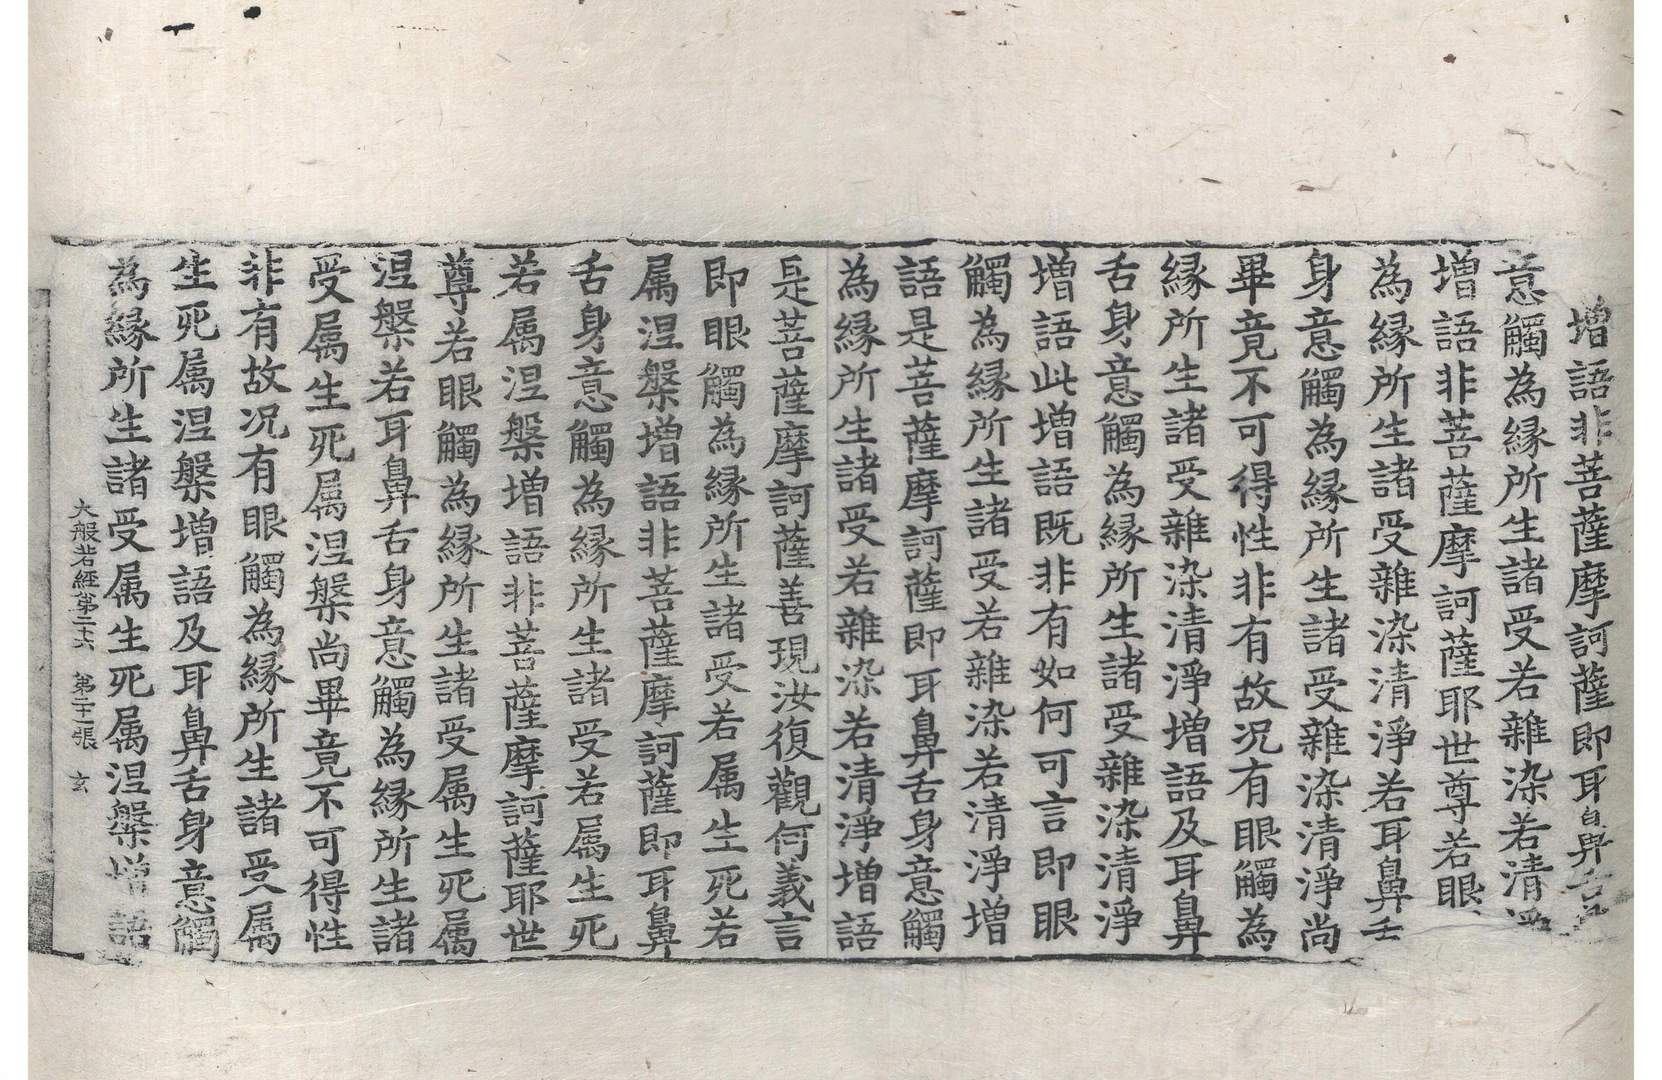 增語非菩薩摩訶薩即耳鼻舌身
意觸為緣所生諸受若雜染若清淨
增語非菩薩摩訶薩耶世尊若眼
為緣所生諸受雜染清淨若耳鼻舌
身意觸為緣所生諸受雜染清淨尚
畢竟不可得性非有故况有眼觸為
緣所生諸受雜染清淨增語及耳鼻
舌身意觸為緣所生諸受雜染清淨
增語此增語既非有如何可言即眼
觸為緣所生諸受若雜染若清淨增
語是菩薩摩訶薩即耳鼻舌身意觸
為緣所生諸受若雜染若清淨增語
是菩薩摩訶薩善現汝復觀何義言
即眼觸為緣所生諸受若属生死若
属涅槃增語非菩薩摩訶薩即耳鼻
舌身意觸為緣所生諸受若属生死
若属涅槃增語非菩薩摩訶薩耶世
尊若眼觸為緣所生諸受属生死属
涅槃若耳鼻舌身意觸為緣所生諸
受属生死属涅槃尚畢竟不可得性
非有故况有眼觸為緣所生諸受属
生死属涅槃增語及耳鼻舌身意觸
為緣所生諸受属生死属涅槃增語
大般若經第三十六 第二十二張 玄